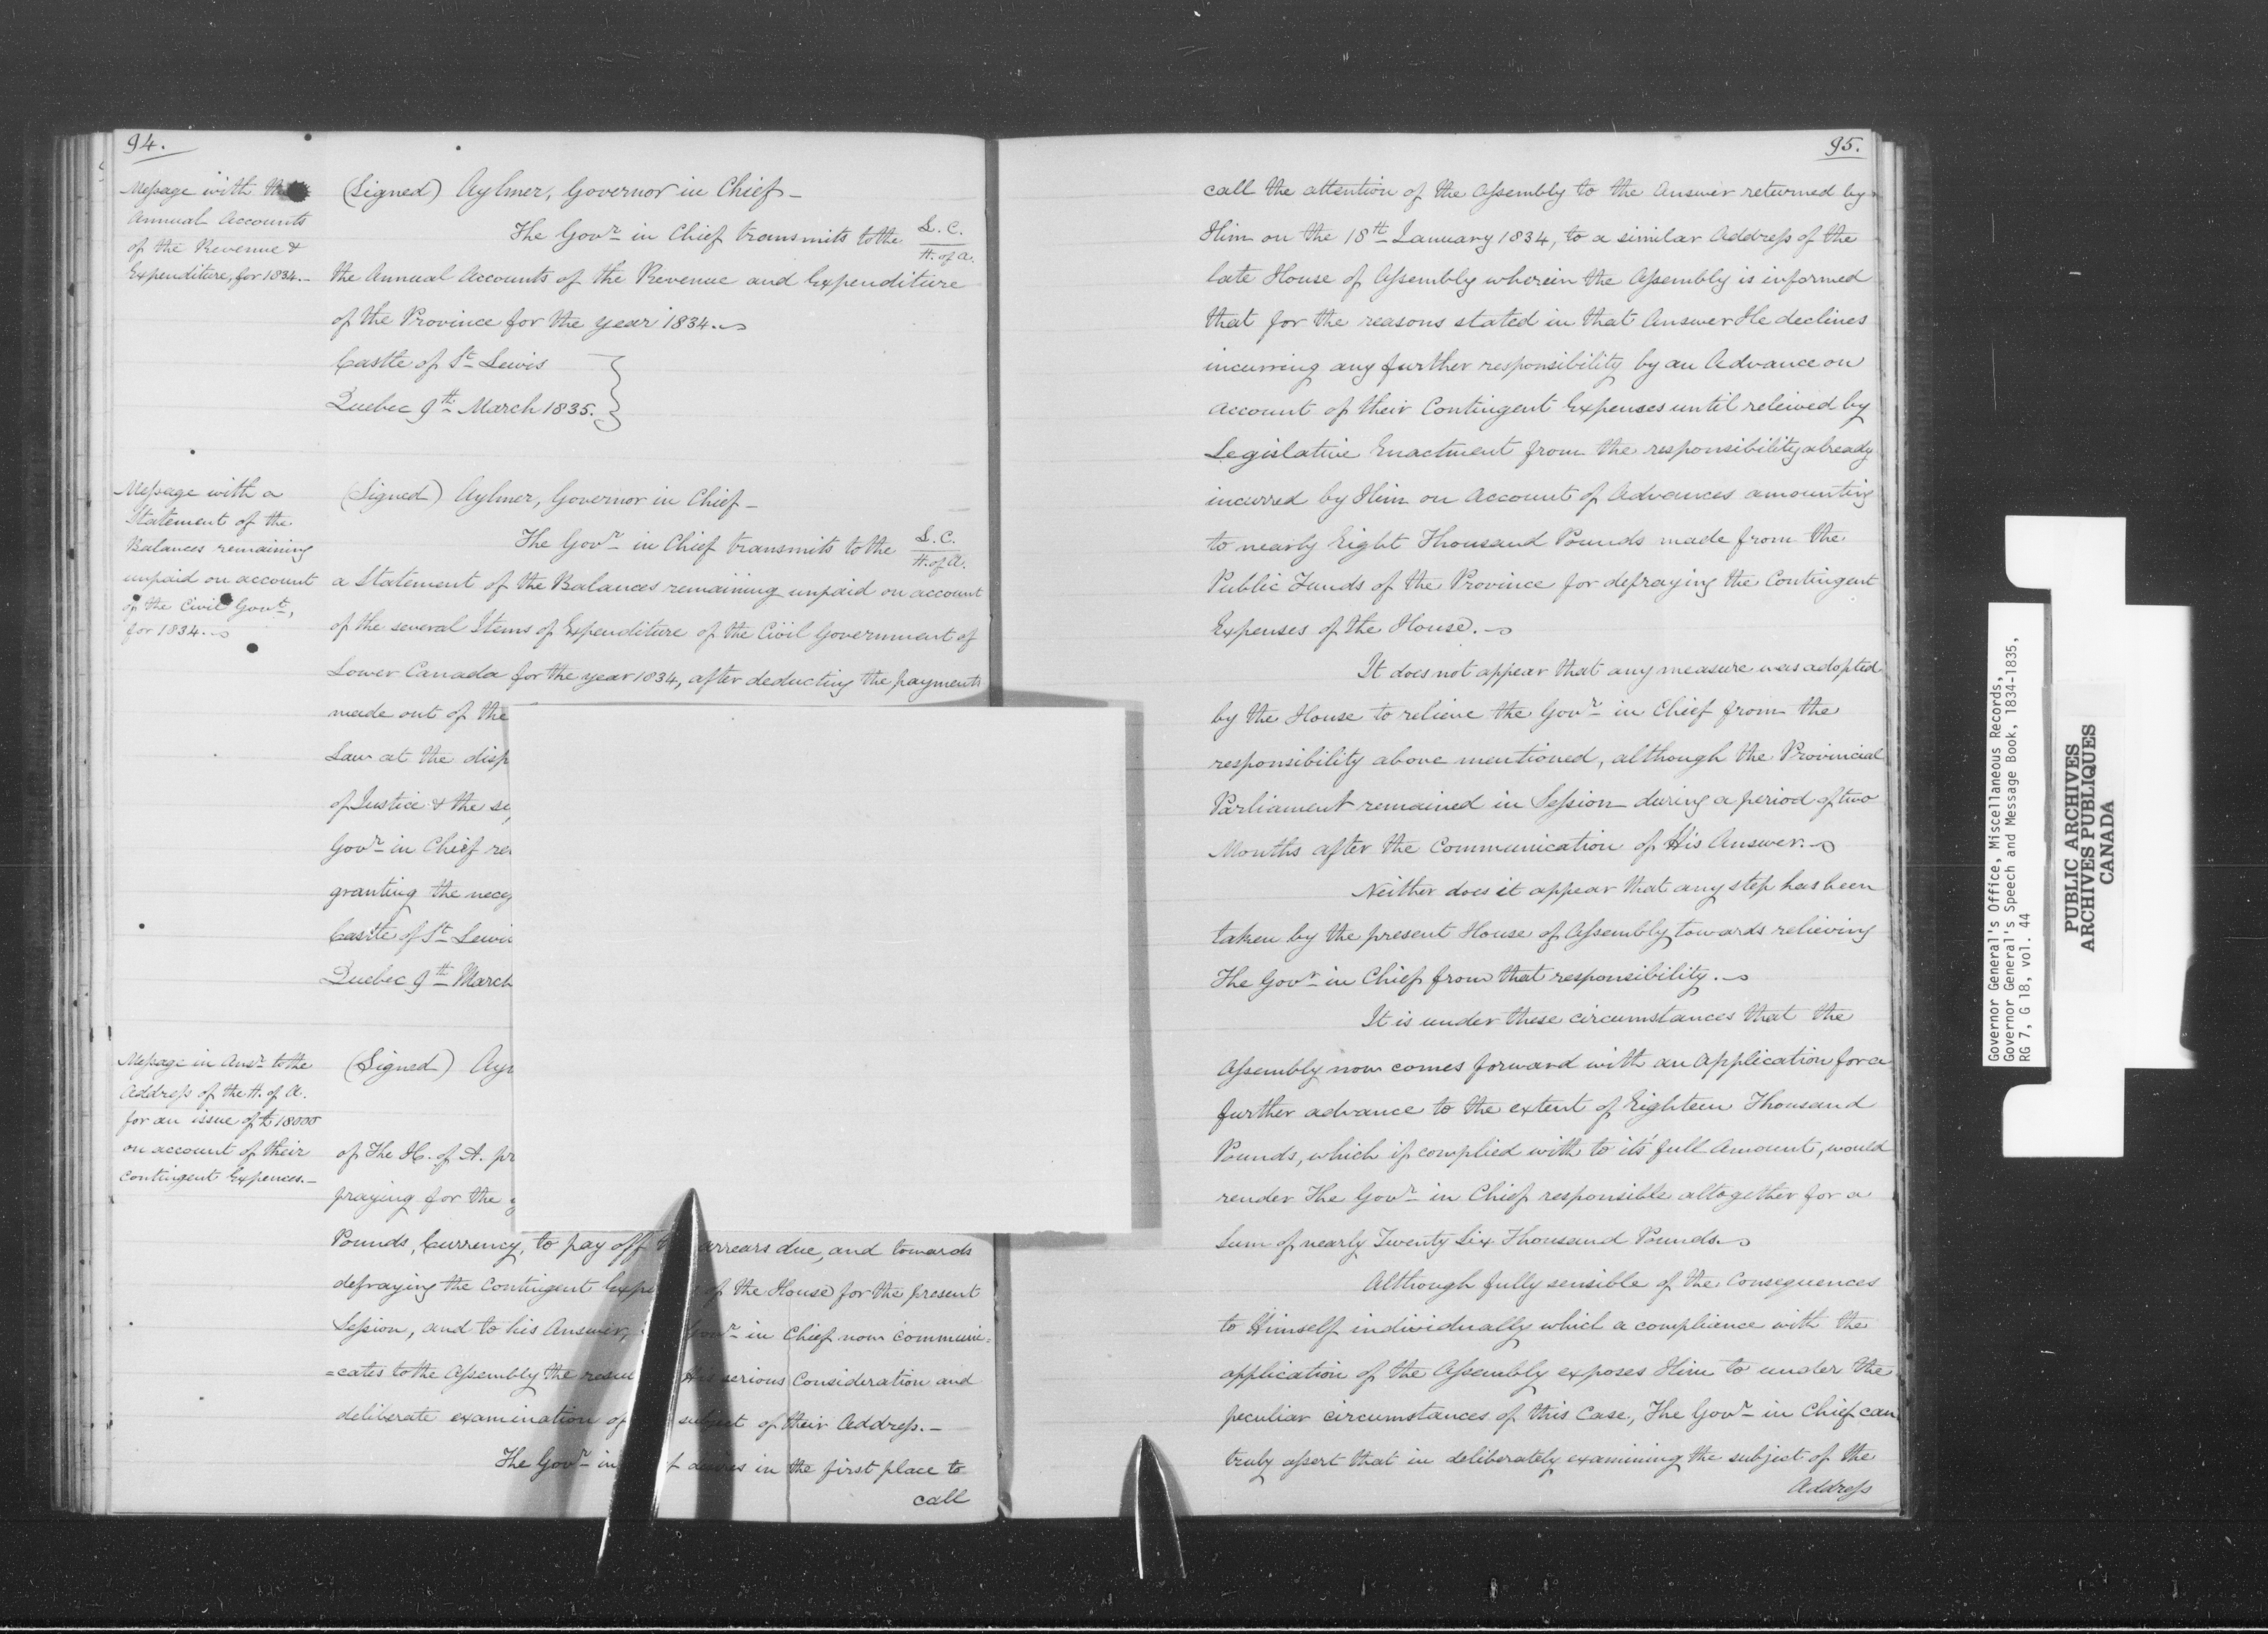 94.
Message with the
Annual Accounts
of the Revenue &
Expenditure, for 1834.-
(Signed) Aylmer, Governor in Chief -
The Govr in Chief transmits to the L. C. / H. of A.
the Annual Accounts of the Revenue and Expenditure
of the Province for the year 1834.
Castle of St Lewis
Quebec 9th March 1835.
Message with a
Statement of the
Balances remaining
unpaid on account
of the Civil Govt,
for 1834.
(Signed) Aylmer, Governor in Chief -
The Govr in Chief transmits to the L. C. / H. of A.
a Statement of the Balances remaining unpaid on account
of the several Items of Expenditure of the Civil Government of
Lower Canada for the year 1834, after deducting the payments
made out of the
Law at the disp
of Justice & the
Govr in Chief
granting the
Castle of St Lewi
Quebec 9th March
Message in Answr to the
Address of the H. of A.
for an issue of £18000
on account of their
contingent Expences.-
(Signed) Ayl
of The H. of A. pr
praying for the
Pounds, Currency, to pay off arrears due, and towards
defraying the Contingent of the House for the present
Session, and to his Answer, Govr in Chief now communi=
=cates to the Assembly the His serious Consideration and
deliberate examination of subject of their Address.-
The Govr in desires in the first place to
call
95.
call the attention of the Assembly to the Answer returned by
Him on the 18th January 1834, to a similar Address of the
late House of Assembly wherein the Assembly is informed
that for the reasons stated in that Answer He declines
incurring any further responsibility by an Advance on
account of their Contingent Expenses until releived by
Legislative Enactment from the responsibility already
incurred by Him on Account of Advances amounting
to nearly Eight Thousand Pounds made from the
Public Funds of the Province for defraying the Contingent
Expenses of the House.
It does not appear that any measure was adopted
by the House to relieve the Govr in Chief from the
responsibility above mentioned, although the Provincial
Parliament remained in Session during a period of two
Months after the Communication of His Answer.
Neither does it appear that any step has been
taken by the present House of Assembly towards relieving
The Govr in Chief from that responsibility.
It is under these circumstances that the
Assembly now comes forward with an Application for a
further advance to the extent of Eighteen Thousand
Pounds, which if complied with to it's full Amount, would
render The Govr in Chief responsible altogether for a
Sum of nearly Twenty Six Thousand Pounds.
Although fully sensible of the Consequences
to Himself individually which a complience with the
application of the Assembly exposes Him to under the
peculiar circumstances of this Case, The Govr in Chief can
truly assert that in deliberately examining the subject of the
Address
Governor General's Office, Miscellaneous Records,
Governor General's Speech and Message Book, 1834-1835,
RG 7, G 18, vol. 44
PUBLIC ARCHIVES
ARCHIVES PUBLIQUES
CANADA